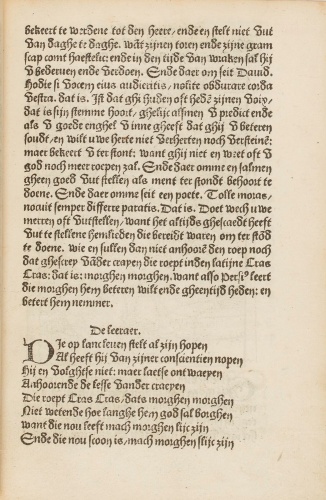 bekeert te wordene tot den heere/ ende en stelt niet vut
van daghe te daghe. wāt zijnen toren ende zijne gram
scap comt haestelic: ende in den tijde van wraken sal hij
v bederuen ende verdoen. Ende daer om seit Dauid.
Hodie si vocem eius audieritis/ nolite obdurare corda
vestra. dat is. Ist dat ghi huden oft hedē zijnen voix/
dat is sijn stemme hoort/ ghelijc alsmen v predict ende
als v goede enghel v inne gheeft dat ghij v beteren
soudt/ en wilt uwe herte niet verherten noch versteinē:
maer bekeert v ter stont: want ghij niet en weet oft v
god noch meer roepen zal. Ende daer omme en salmen
gheen goed vut stellen als ment ter stondt behoort te
doene. Ende daer omme seit een poete. Tolle moras/
nocuit semper differre paratis. Dat is. Doet wech uwe
merren oft vutstellen/ want het altijds ghescaedt heeft
vut te stellene hemlieden die bereidt waren om ter stōd
te doene. wie en sullen dan niet anhoorē den roep noch
dat ghescrey vāder crayen die roept in den latijne Cras
Cras: dat is: morghen morghen. want also Persiꝰ leert
die morghen hem beteren wilt ende gheen tijd heden: en
betert hem nemmer.
De leeraer.
Die op lanc leuen stelt al zijn hopen
Al heeft hij van zijner conscientien nopen
Hij en volghese niet: maer laetse ontwaeyen
Anhoorende de lesse vander craeyen
Die roept Cras Cras/ dats morghen morghen
Niet wetende hoe langhe hem god sal borghen
want die nou leeft mach morghen lijc zijn
Ende die nou scoon is/ mach morghen slijc zijn